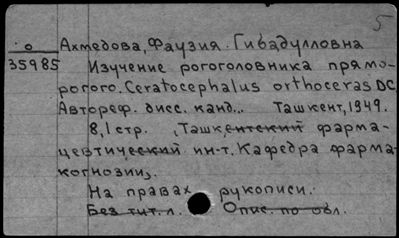 5
о Ахмедова, Фаузия Гибадулловна
35985 Изучение рогоголовника прямо-
рогого. Ceratocephalus orthoceras DC
Автореф. дисс. канд... Ташкент, 1949.
8,1 стр. , Ташкентский фарма-
цевтический ин-т. Кафедра фарма-
когнозии,
На правах рукописи.
Без тит. л. Опис. по обл.